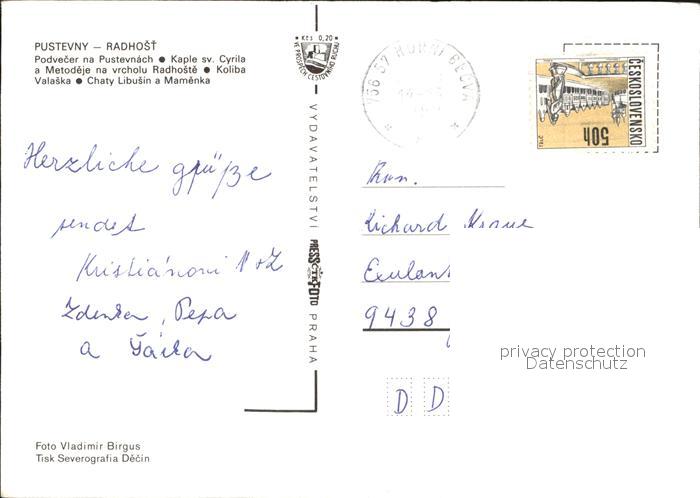 PUSTEVNY — RADHOŠŤ
Podvečer na Pustevnách ● Kaple sv. Cyrila
a Metoděje na vrcholu Radhoště ● Koliba
Valaška ● Chaty Libušín a Maměnka
Herzliche grüße
sendet
Kristiánovi
Zdenka, Pepa
a Šárka
Foto Vladimir Birgus
Tisk Severografia Děčín
Kčs 0,20
VE PROSPĚCH CESTOVNÍHO RUCHU
VYDAVATELSTVÍ PRESSFOTO PRAHA
ČTK
756 57 HORNÍ BEČVA
ČESKOSLOVENSKO
50h
Richard
Exulant
9438
D D
privacy protection
Datenschutz